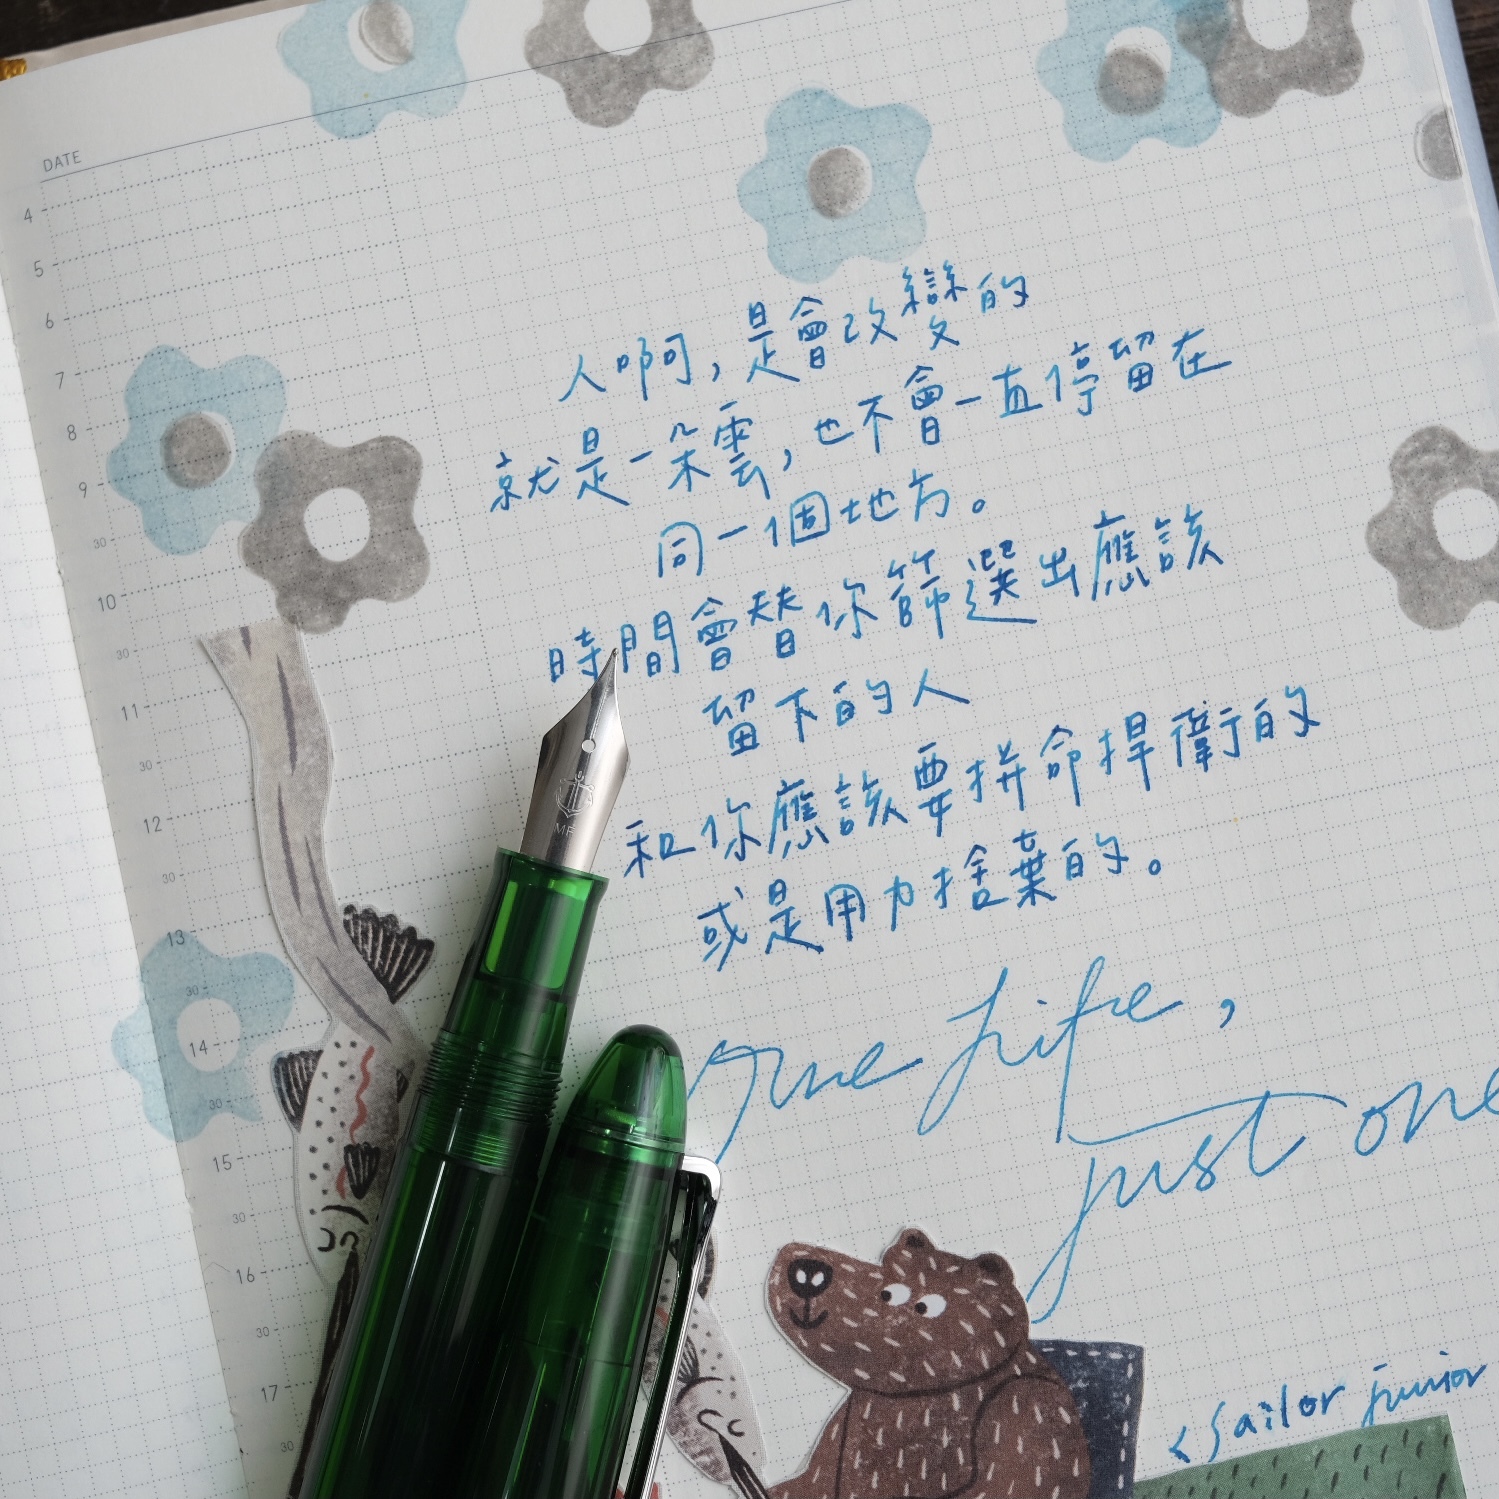 DATE
4
5
6
7
8
9
30
10
30
11
30
12
30
13
30
14
30
15
30
16
30
17
30
人啊，是會改變的
就是一朵雲，也不會一直停留在
同一個地方。
時間會替你篩選出應該
留下的人
和你應該要拼命捍衛的
或是用力捨棄的。
One Life,
just one
<Sailor junior
MF